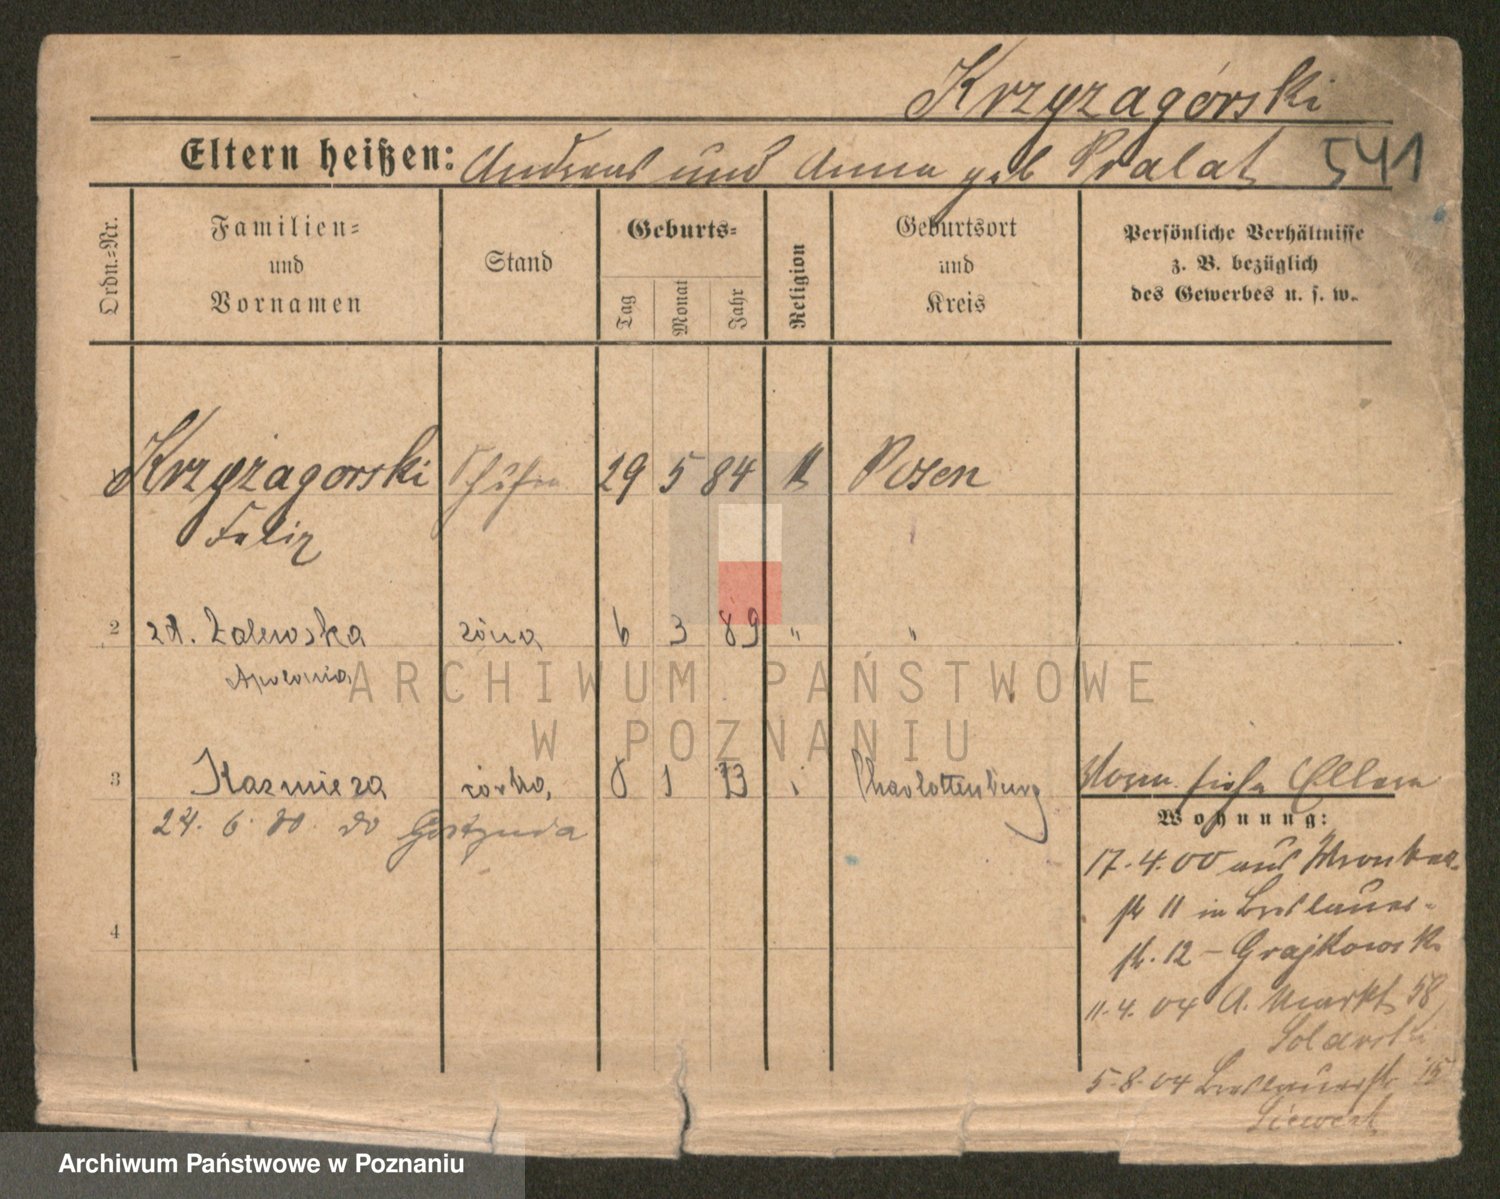 Krzyzagórski
Eltern heißen: Andreas und Anna geb Pralat 541
Ordn.-Nr.
Familien-
und
Vornamen
Stand
Geburts-
Tag
Monat
Jahr
Religion
Geburtsort
und
Kreis
Persönliche Verhältnisse
z. B. bezüglich
des Gewerbes u. s. w.
Krzyżagorski 29 5 84 Posen
Felix
2 zd. Zalewska żona 6 3 89 " "
Apolonia
3 Kazmiera córka 8 1 13 Charlottenburg
Vorm. siehe Eltern
24. 6. do Gostynia
Wohnung:
17.4.00 aus Wronker-
str 11 in Breslauer-
4
str. 12 – Grajkowsk
11.4.04 A. Markt 58
5.8.04 Breslauerstr 15
ARCHIWUM PAŃSTWOWE
W POZNANIU
Archiwum Państwowe w Poznaniu